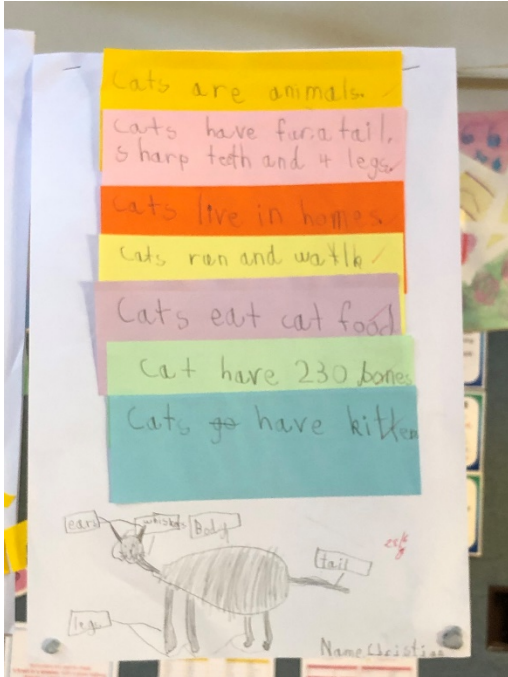 Cats are animals.
Cats have fur, a tail,
sharp teth and 4 legs.
Cats live in homes.
Cats run and watlk
Cats eat cat food
Cat have 230 bones
Cats go have kitten
ears
whiskers
Body
tail
legs
Name Christian